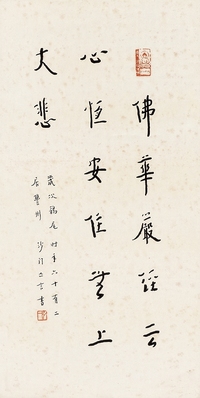 佛華嚴經云
心恒安住無上
大悲
歲次鶉尾時年六十有二
居豐州 沙門亡言書